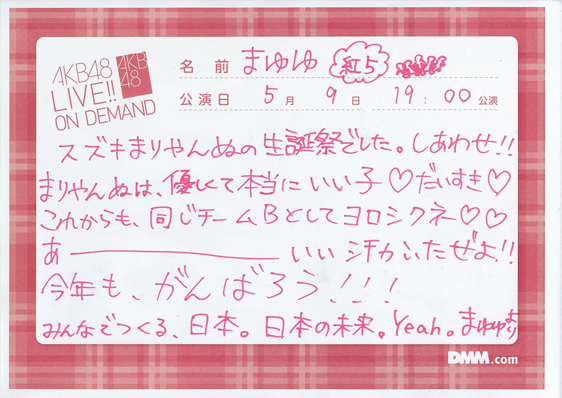 AKB48
LIVE!!
ON DEMAND
AKB
48
名前 まゆゆ 紅5
公演日 5月9日 19:00公演
スズキまりやんぬの生誕祭でした。しあわせ!!
まりやんぬは、優しくて本当にいい子♡だいすき♡
これからも、同じチームBとしてヨロシクネ♡♡
あーーーいい汗かいたぜよ!!
今年も、がんばろう!!!
みんなでつくる、日本。日本の未来。Yeah。まゆゆより
DMM.com